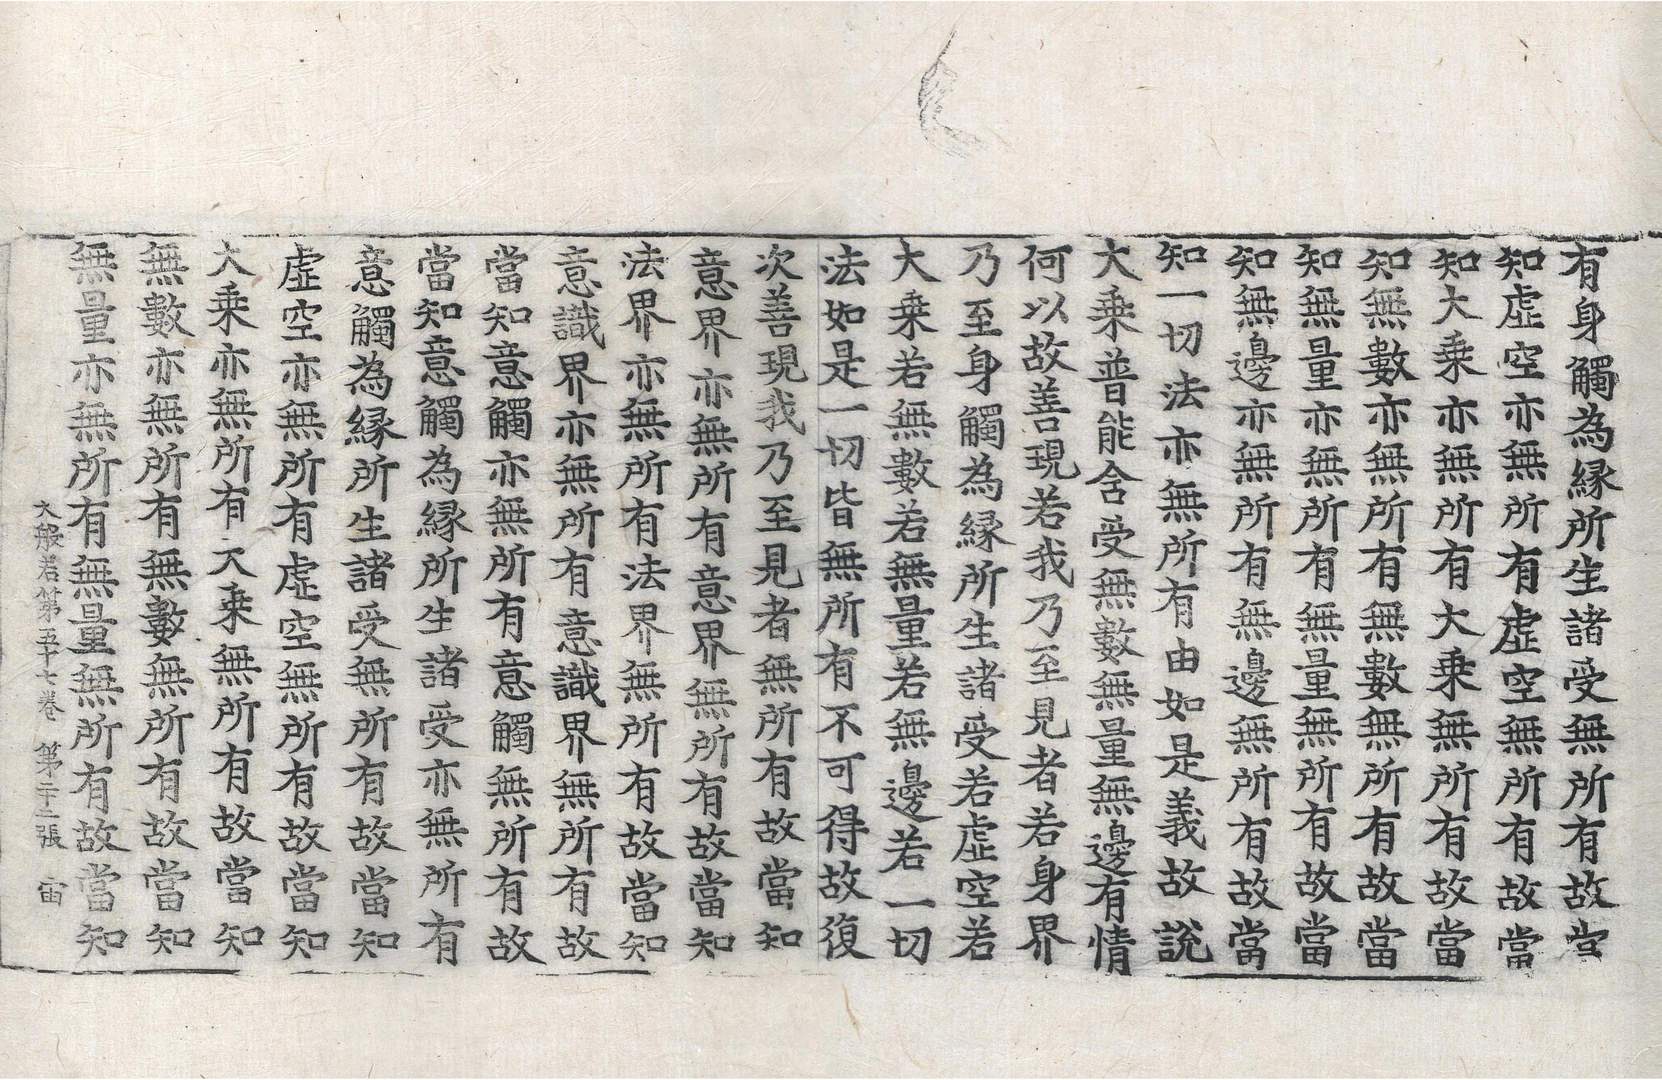 有身觸為縁所生諸受無所有故當
知虚空亦無所有虚空無所有故當
知大乗亦無所有大乗無所有故當
知無數亦無所有無數無所有故當
知無量亦無所有無量無所有故當
知無邊亦無所有無邊無所有故當
知一切法亦無所有由如是義故說
大乗普能含受無數無量無邊有情
何以故善現若我乃至見者若身界
乃至身觸為縁所生諸受若虚空若
大乗若無數若無量若無邊若一切
法如是一切皆無所有不可得故復
次善現我乃至見者無所有故當知
意界亦無所有意界無所有故當知
法界亦無所有法界無所有故當知
意識界亦無所有意識界無所有故
當知意觸亦無所有意觸無所有故
當知意觸為縁所生諸受亦無所有
意觸為縁所生諸受無所有故當知
虚空亦無所有虚空無所有故當知
大乗亦無所有大乗無所有故當知
無數亦無所有無數無所有故當知
無量亦無所有無量無所有故當知
大般若第五十七卷　第二十二張　宙